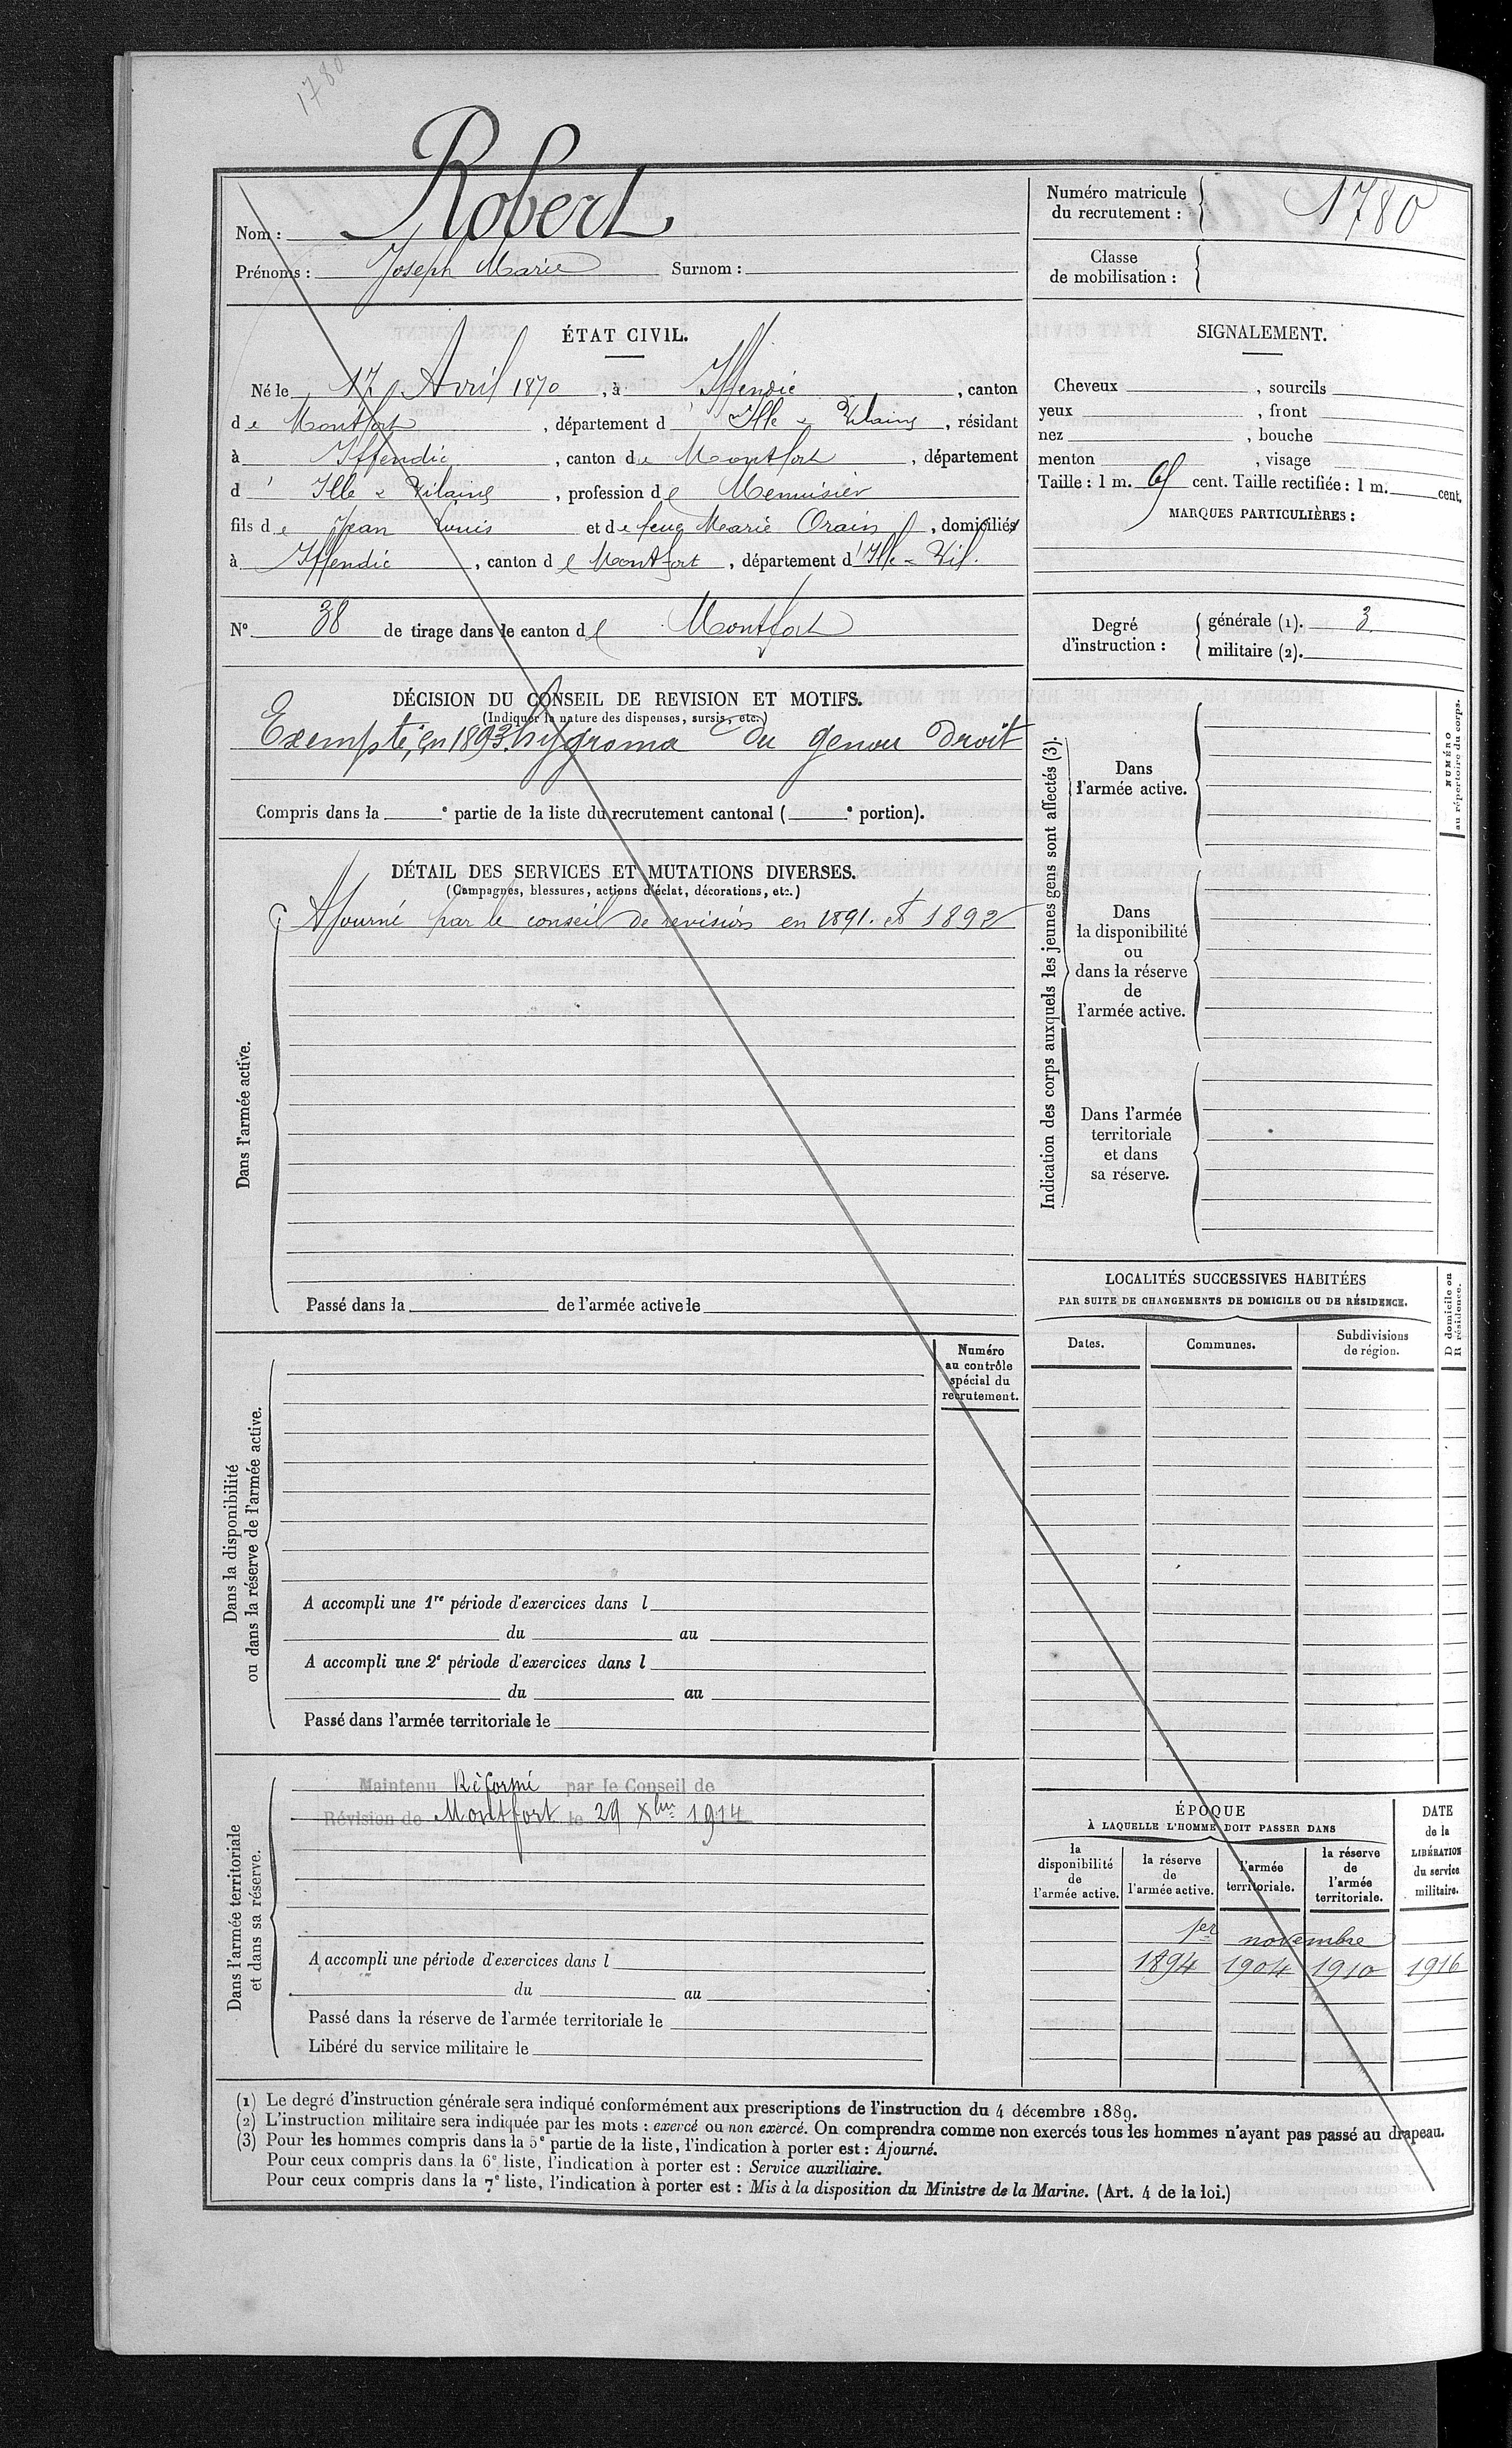 1780
Nom : Robert
Prénoms : Joseph Marie Surnom :
Numéro matricule
du recrutement : 1780
Classe
de mobilisation :
ÉTAT CIVIL.
Né le 17 Avril 1870, à Iffendic, canton
de Montfort, département d' Ille & Vilaine, résidant
à Iffendic, canton de Montfort, département
d' Ille & Vilaine, profession de Menuisier
fils de Jean Louis et de feue Marie Orain, domiciliés
à Iffendic, canton de Montfort, département d' Ille & Vil.
N° 38 de tirage dans le canton de Montfort
SIGNALEMENT.
Cheveux , sourcils
yeux , front
nez , bouche
menton , visage
Taille : 1 m. cent. Taille rectifiée : 1 m. cent.
MARQUES PARTICULIÈRES :
Degré
d'instruction :
générale (1). 3
militaire (2).
DÉCISION DU CONSEIL DE REVISION ET MOTIFS.
(Indiquer la nature des dispenses, sursis, etc.)
Exempté, en 1893, hygroma du genou droit
Compris dans la e partie de la liste du recrutement cantonal ( e portion).
DÉTAIL DES SERVICES ET MUTATIONS DIVERSES.
(Campagnes, blessures, actions d'éclat, décorations, etc.)
Dans l'armée active.
Ajourné par le conseil de revision en 1891. et 1892
Passé dans la de l'armée active le
Indication des corps auxquels les jeunes gens sont affectés (3).
Dans
l'armée active.
Dans
la disponibilité
ou
dans la réserve
de
l'armée active.
Dans l'armée
territoriale
et dans
sa réserve.
NUMÉRO
au répertoire du corps.
LOCALITÉS SUCCESSIVES HABITÉES
PAR SUITE DE CHANGEMENTS DE DOMICILE OU DE RÉSIDENCE.
Dates. Communes. Subdivisions
de région.
D domicile ou
R résidence.
Dans la disponibilité
ou dans la réserve de l'armée active.
Numéro
au contrôle
spécial du
recrutement.
A accompli une 1re période d'exercices dans l
du au
A accompli une 2e période d'exercices dans l
du au
Passé dans l'armée territoriale le
Dans l'armée territoriale
et dans sa réserve.
Maintenu Réformé par le Conseil de
Révision de Montfort le 29 Xbre 1914
A accompli une période d'exercices dans l
du au
Passé dans la réserve de l'armée territoriale le
Libéré du service militaire le
ÉPOQUE
À LAQUELLE L'HOMME DOIT PASSER DANS
la
disponibilité
de
l'armée active.
la réserve
de
l'armée active.
l'armée
territoriale.
la réserve
de
l'armée
territoriale.
DATE
de la
LIBÉRATION
du service
militaire.
1er novembre
1894 1904 1910 1916
(1) Le degré d'instruction générale sera indiqué conformément aux prescriptions de l'instruction du 4 décembre 1889.
(2) L'instruction militaire sera indiquée par les mots : exercé ou non exercé. On comprendra comme non exercés tous les hommes n'ayant pas passé au drapeau.
(3) Pour les hommes compris dans la 5e partie de la liste, l'indication à porter est : Ajourné.
Pour ceux compris dans la 6e liste, l'indication à porter est : Service auxiliaire.
Pour ceux compris dans la 7e liste, l'indication à porter est : Mis à la disposition du Ministre de la Marine. (Art. 4 de la loi.)